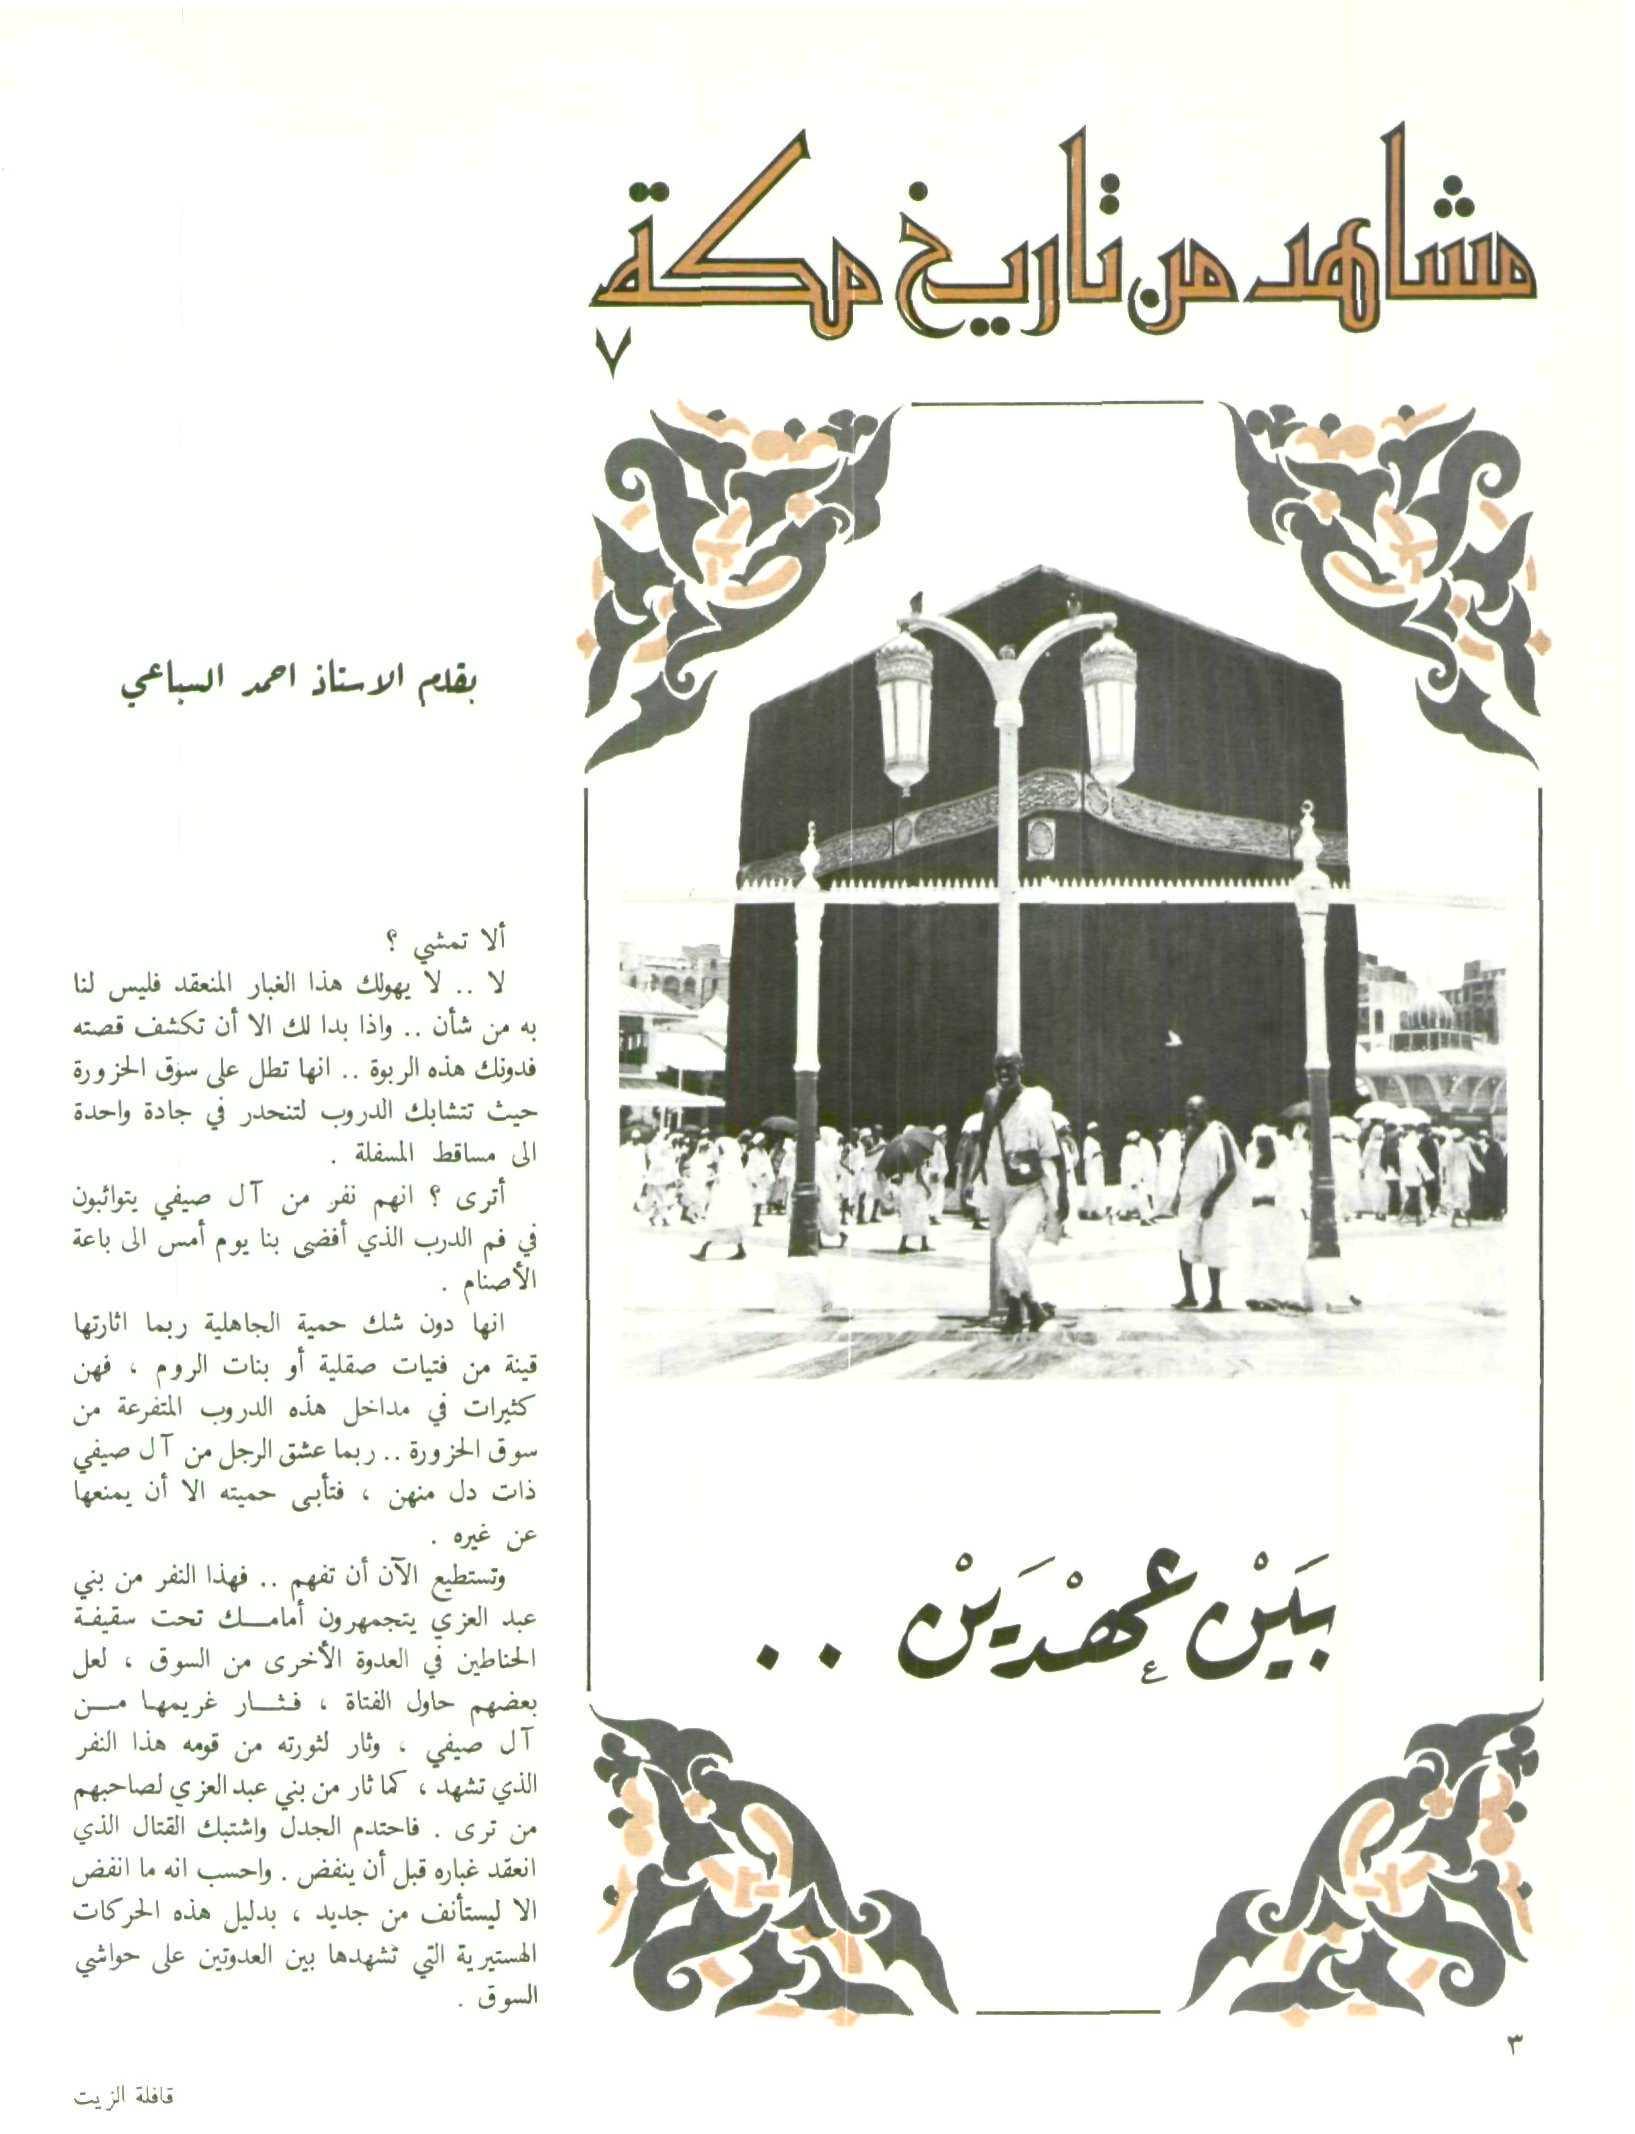 مشاهد من تاريخ مكة
٧
بقلم الاستاذ احمد السباعي
بَيْن عهْدَيْن ..
ألا تمشي ؟
لا .. لا يهولك هذا الغبار المنعقد فليس لنا
به من شأن .. واذا بدا لك الا أن تكشف قصته
فدونك هذه الربوة .. انها تطل على سوق الحزورة
حيث تتشابك الدروب لتنحدر في جادة واحدة
الى مساقط المسفلة .
أترى ؟ انهم نفر من آل صيفي يتواثبون
في فم الدرب الذي أفضى بنا يوم أمس الى باعة
الأصنام .
انها دون شك حمية الجاهلية ربما اثارتها
قينة من فتيات صقلية أو بنات الروم ، فهن
كثيرات في مداخل هذه الدروب المتفرعة من
سوق الحزورة .. ربما عشق الرجل من آل صيفي
ذات دل منهن ، فتأبى حميته الا أن يمنعها
عن غيره .
وتستطيع الآن أن تفهم .. فهذا النفر من بني
عبد العزي يتجمهرون أمامك تحت سقيفة
الحناطين في العدوة الأخرى من السوق ، لعل
بعضهم حاول الفتاة ، فثار غريمها من
آل صيفي ، وثار لثورته من قومه هذا النفر
الذي تشهد ، كما ثار من بني عبد العزي لصاحبهم
من ترى . فاحتدم الجدل واشتبك القتال الذي
انعقد غباره قبل أن ينفض . واحسب انه ما انفض
الا ليستأنف من جديد ، بدليل هذه الحركات
الهستيرية التي تشهدها بين العدوتين على حواشي
السوق .
٣
قافلة الزيت